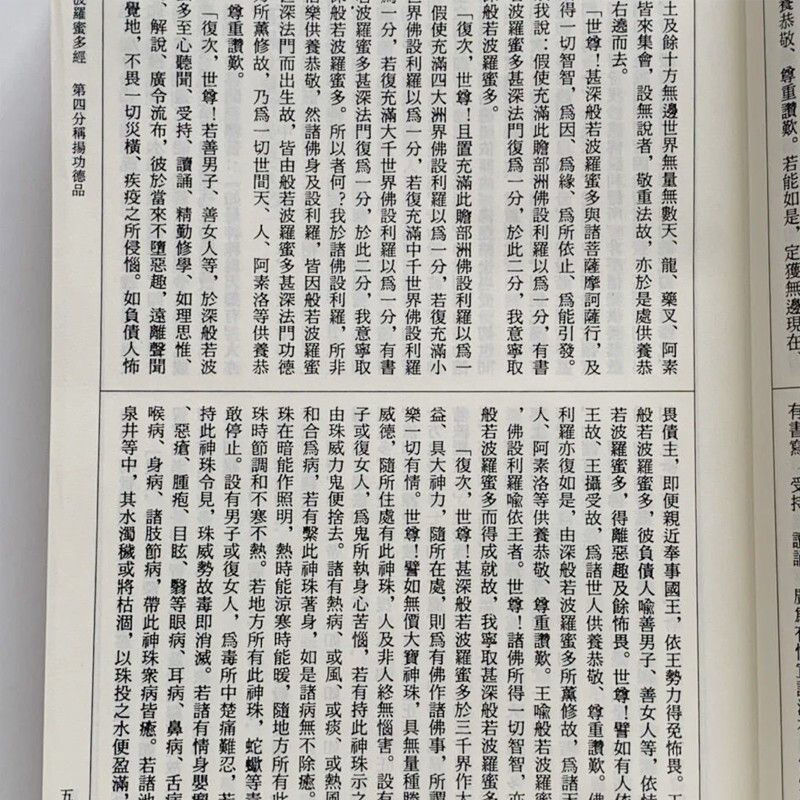 養恭敬、尊重讚歎。若能如是，定獲無邊現在
土及餘十方無邊世界無量無數天、龍、藥叉、阿素
皆來集會，設無說者，敬重法故，亦於是處供養恭
右遶而去。
「世尊！甚深般若波羅蜜多與諸菩薩摩訶薩行，及
得一切智智，爲因、爲緣、爲所依止、爲能引發。
我說：假使充滿此贍部洲佛設利羅以爲一分，有書
若波羅蜜多甚深法門復爲一分，於此二分，我意寧取
波羅蜜多。
「復次，世尊！且置充滿此贍部洲佛設利羅以爲一
假使充滿四大洲界佛設利羅以爲一分，若復充滿小
世界佛設利羅以爲一分，若復充滿中千世界佛設利羅
爲一分，若復充滿大千世界佛設利羅以爲一分，有書
若波羅蜜多甚深法門復爲一分，於此二分，我意寧取
般若波羅蜜多。所以者何？我於諸佛設利羅，所非
信樂供養恭敬，然諸佛身及設利羅，皆因般若波羅蜜
甚深法門而出生故，皆由般若波羅蜜多甚深法門功德
所薰修故，乃爲一切世間天、人、阿素洛等供養恭
尊重讚歎。
「復次，世尊！若善男子、善女人等，於深般若波
多至心聽聞、受持、讀誦、精勤修學、如理思惟、
、解說、廣令流布，彼於當來不墮惡趣，遠離聲聞
覺地，不畏一切災橫、疾疫之所侵惱。如負債人怖
有書寫、受持、讀誦、
畏債主，即便親近奉事國王，依王勢力得免怖畏。王
般若波羅蜜多，彼負債人喻善男子、善女人等，依恃
若波羅蜜多，得離惡趣及餘怖畏。世尊！譬如有人依
王故，王攝受故，爲諸世人供養恭敬、尊重讚歎。佛
利羅亦復如是，由深般若波羅蜜多所薰修故，爲諸天
人、阿素洛等供養恭敬、尊重讚歎。王喻般若波羅蜜
，佛設利羅喻依王者。世尊！諸佛所得一切智智，亦
般若波羅蜜多而得成就故，我寧取甚深般若波羅蜜多
「復次，世尊！甚深般若波羅蜜多於三千界作大
益，具大神力，隨所在處，則爲有佛作諸佛事，所謂
樂一切有情。世尊！譬如無價大寶神珠，具無量種勝
威德，隨所住處有此神珠，人及非人終無惱害。設有
子或復女人，爲鬼所執身心苦惱，若有持此神珠示之
由珠威力鬼便捨去。諸有熱病、或風、或痰、或熱風
和合爲病，若有繫此神珠著身，如是諸病無不除癒。
珠在暗能作照明，熱時能涼寒時能暖，隨地方所有此
珠時節調和不寒不熱。若地方所有此神珠，蛇蠍等毒
敢停止。設有男子或復女人，爲毒所中楚痛難忍，若
持此神珠令見，珠威勢故毒即消滅。若諸有情身嬰癩
、惡瘡、腫疱、目眩、翳等眼病、耳病、鼻病、舌病
喉病、身病、諸肢節病，帶此神珠衆病皆癒。若諸池
泉井等中，其水濁穢或將枯涸，以珠投之水便盈滿，
波羅蜜多經　第四分稱揚功德品
五